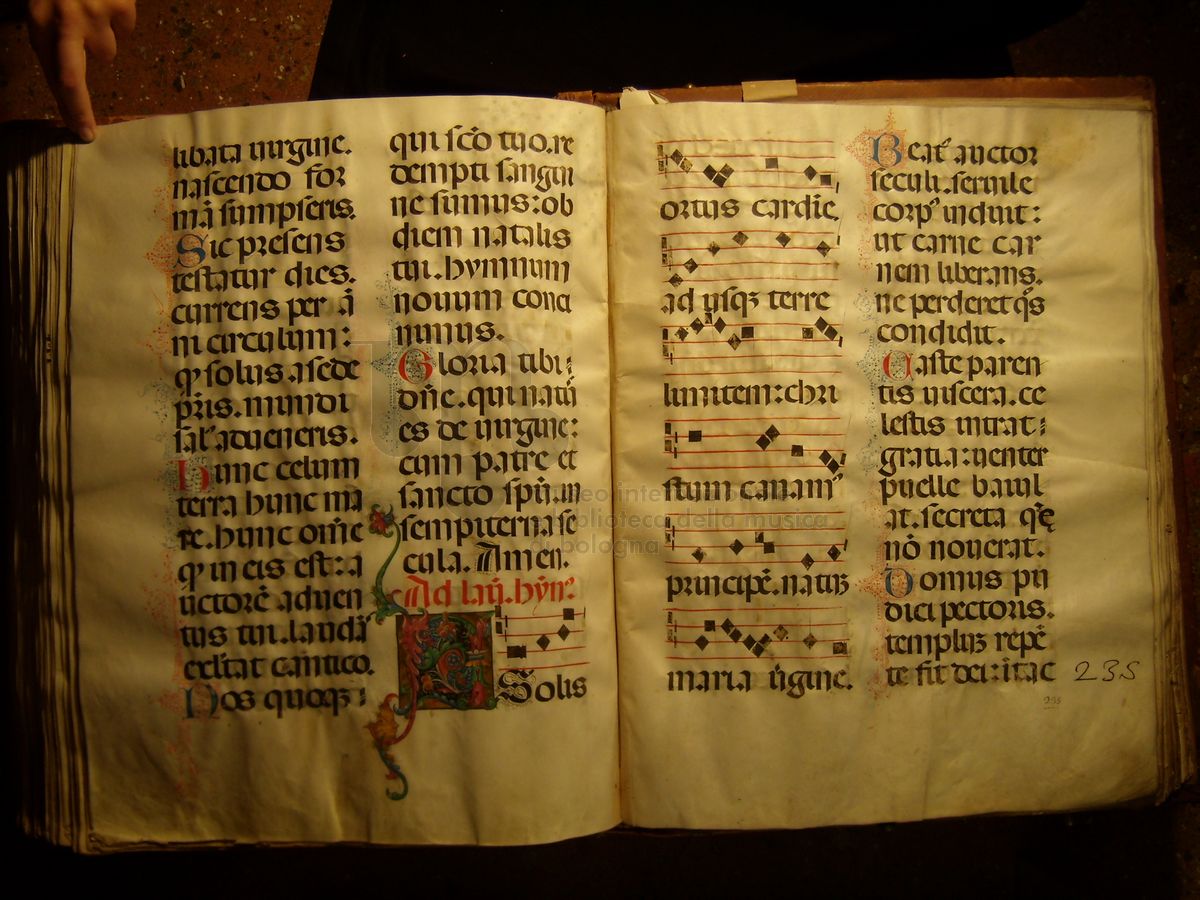 libata uirgine.
nascendo for
mā sumpseris.
Sic presens
testatur dies.
currens per ā
ni circulum:
qp solus a sede
pr̄is. mundi
sal' adueneris.
Hunc celum
terra hunc ma
re. hunc om̄e
qp in eis est: a
uctorē aduen
tus tui. laudāt
exultat cantico.
Nos quoqꝫ:
qui sc̄o tuo. re
dempti sangui
ne sumus: ob
diem natalis
tui. hymnum
nouum conci
nimus.
Gloria tibi:
dn̄e. qui natus
es de uirgine:
cum patre et
sancto spū. in
sempiterna se
cula. Amen.
Ad lau. hyn̄.
Solis
ortus cardīe.
ad usqꝫ terre
limitem: chri
stum canam9
principē. natuꝫ
maria ūgine.
Beat9 auctor
seculi. seruile
corp9 induit:
ut carne car
nem liberans.
ne perderet qs
condidit.
Caste paren
tis uiscera. ce
lestis intrat:
gratia: uenter
puelle baiul
at. secreta qȩ
nō nouerat.
Domus pu
dici pectoris.
templuꝫ repē
te fit dei: itac
235
235
museo internazionale
e biblioteca della musica
di bologna